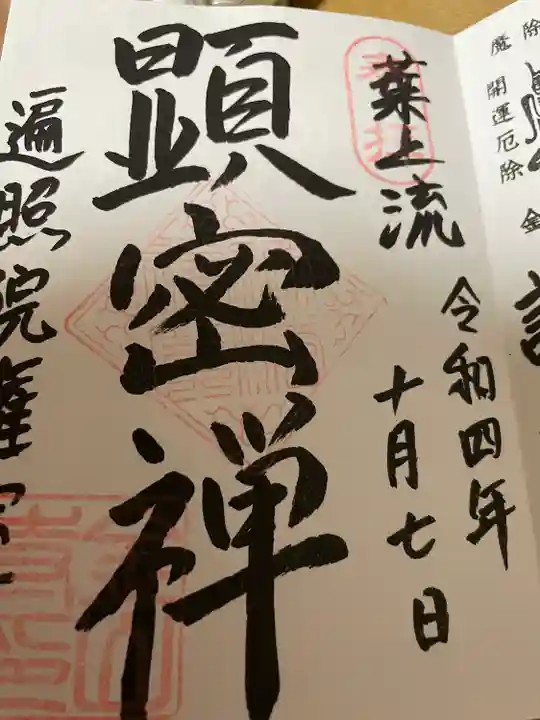 魔除
開運厄除
金
葉上流
令和四年
十月七日
顕密禅
遍照院